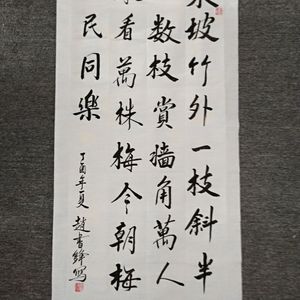 坡竹外一枝斜半
数枝賞墙角萬人
看萬株梅今朝梅
民同樂
丁酉年夏 趙書